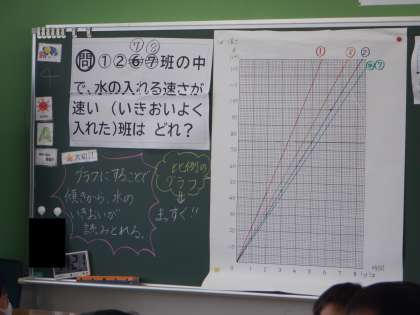 ⑦ ⑧
問 ①②⑥⑦班の中
で、水の入れる速さが
速い （いきおいよく
入れた）班は どれ？
大切！！
グラフにすることで
傾きから、水の
いきおいが
読みとれる。
比例の
グラフ
⇓
まっすぐ！！
① ⑧ ②
0 1 2 3 4 5 6 7 8
時間